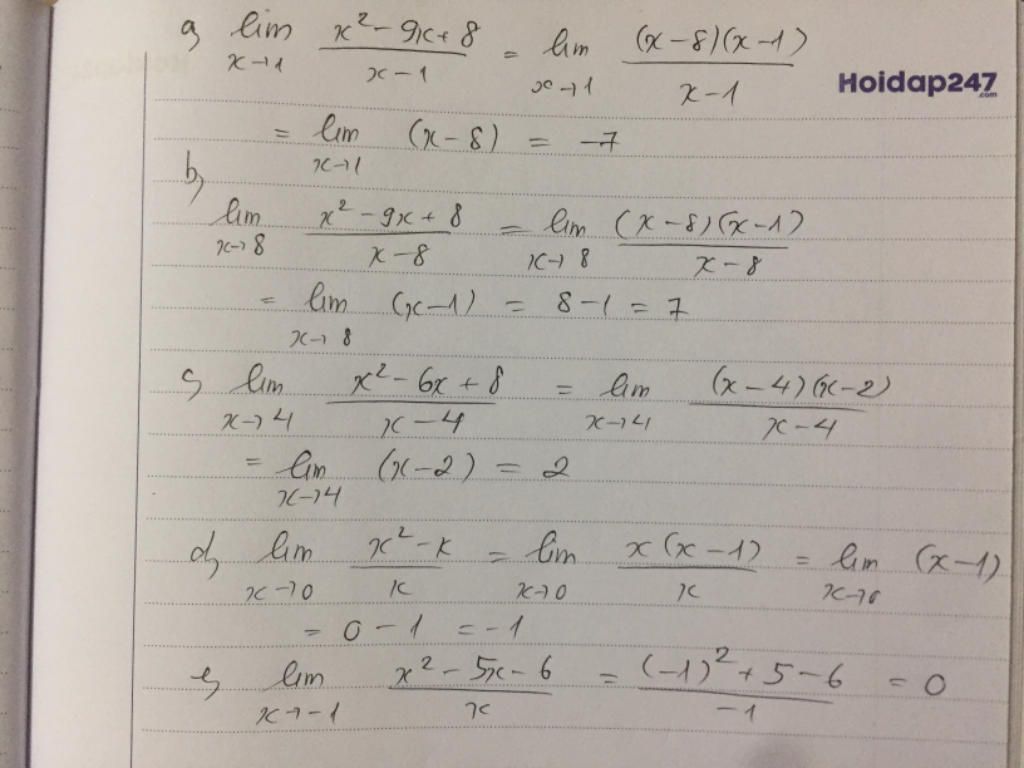 a, lim x→1 (x² - 9x + 8)/(x - 1) = lim x→1 ((x - 8)(x - 1))/(x - 1)
Hoidap247.com
= lim x→1 (x - 8) = -7
b,
lim x→8 (x² - 9x + 8)/(x - 8) = lim x→8 ((x - 8)(x - 1))/(x - 8)
= lim x→8 (x - 1) = 8 - 1 = 7
c, lim x→4 (x² - 6x + 8)/(x - 4) = lim x→4 ((x - 4)(x - 2))/(x - 4)
= lim x→4 (x - 2) = 2
d, lim x→0 (x² - x)/x = lim x→0 (x(x - 1))/x = lim x→0 (x - 1)
= 0 - 1 = -1
e, lim x→-1 (x² - 5x - 6)/x = ((-1)² + 5 - 6)/-1 = 0